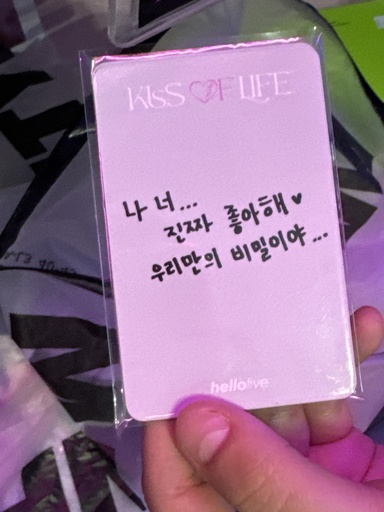 KISS OF LIFE
나 너...
진짜 좋아해♥
우리만의 비밀이야...
hellolive